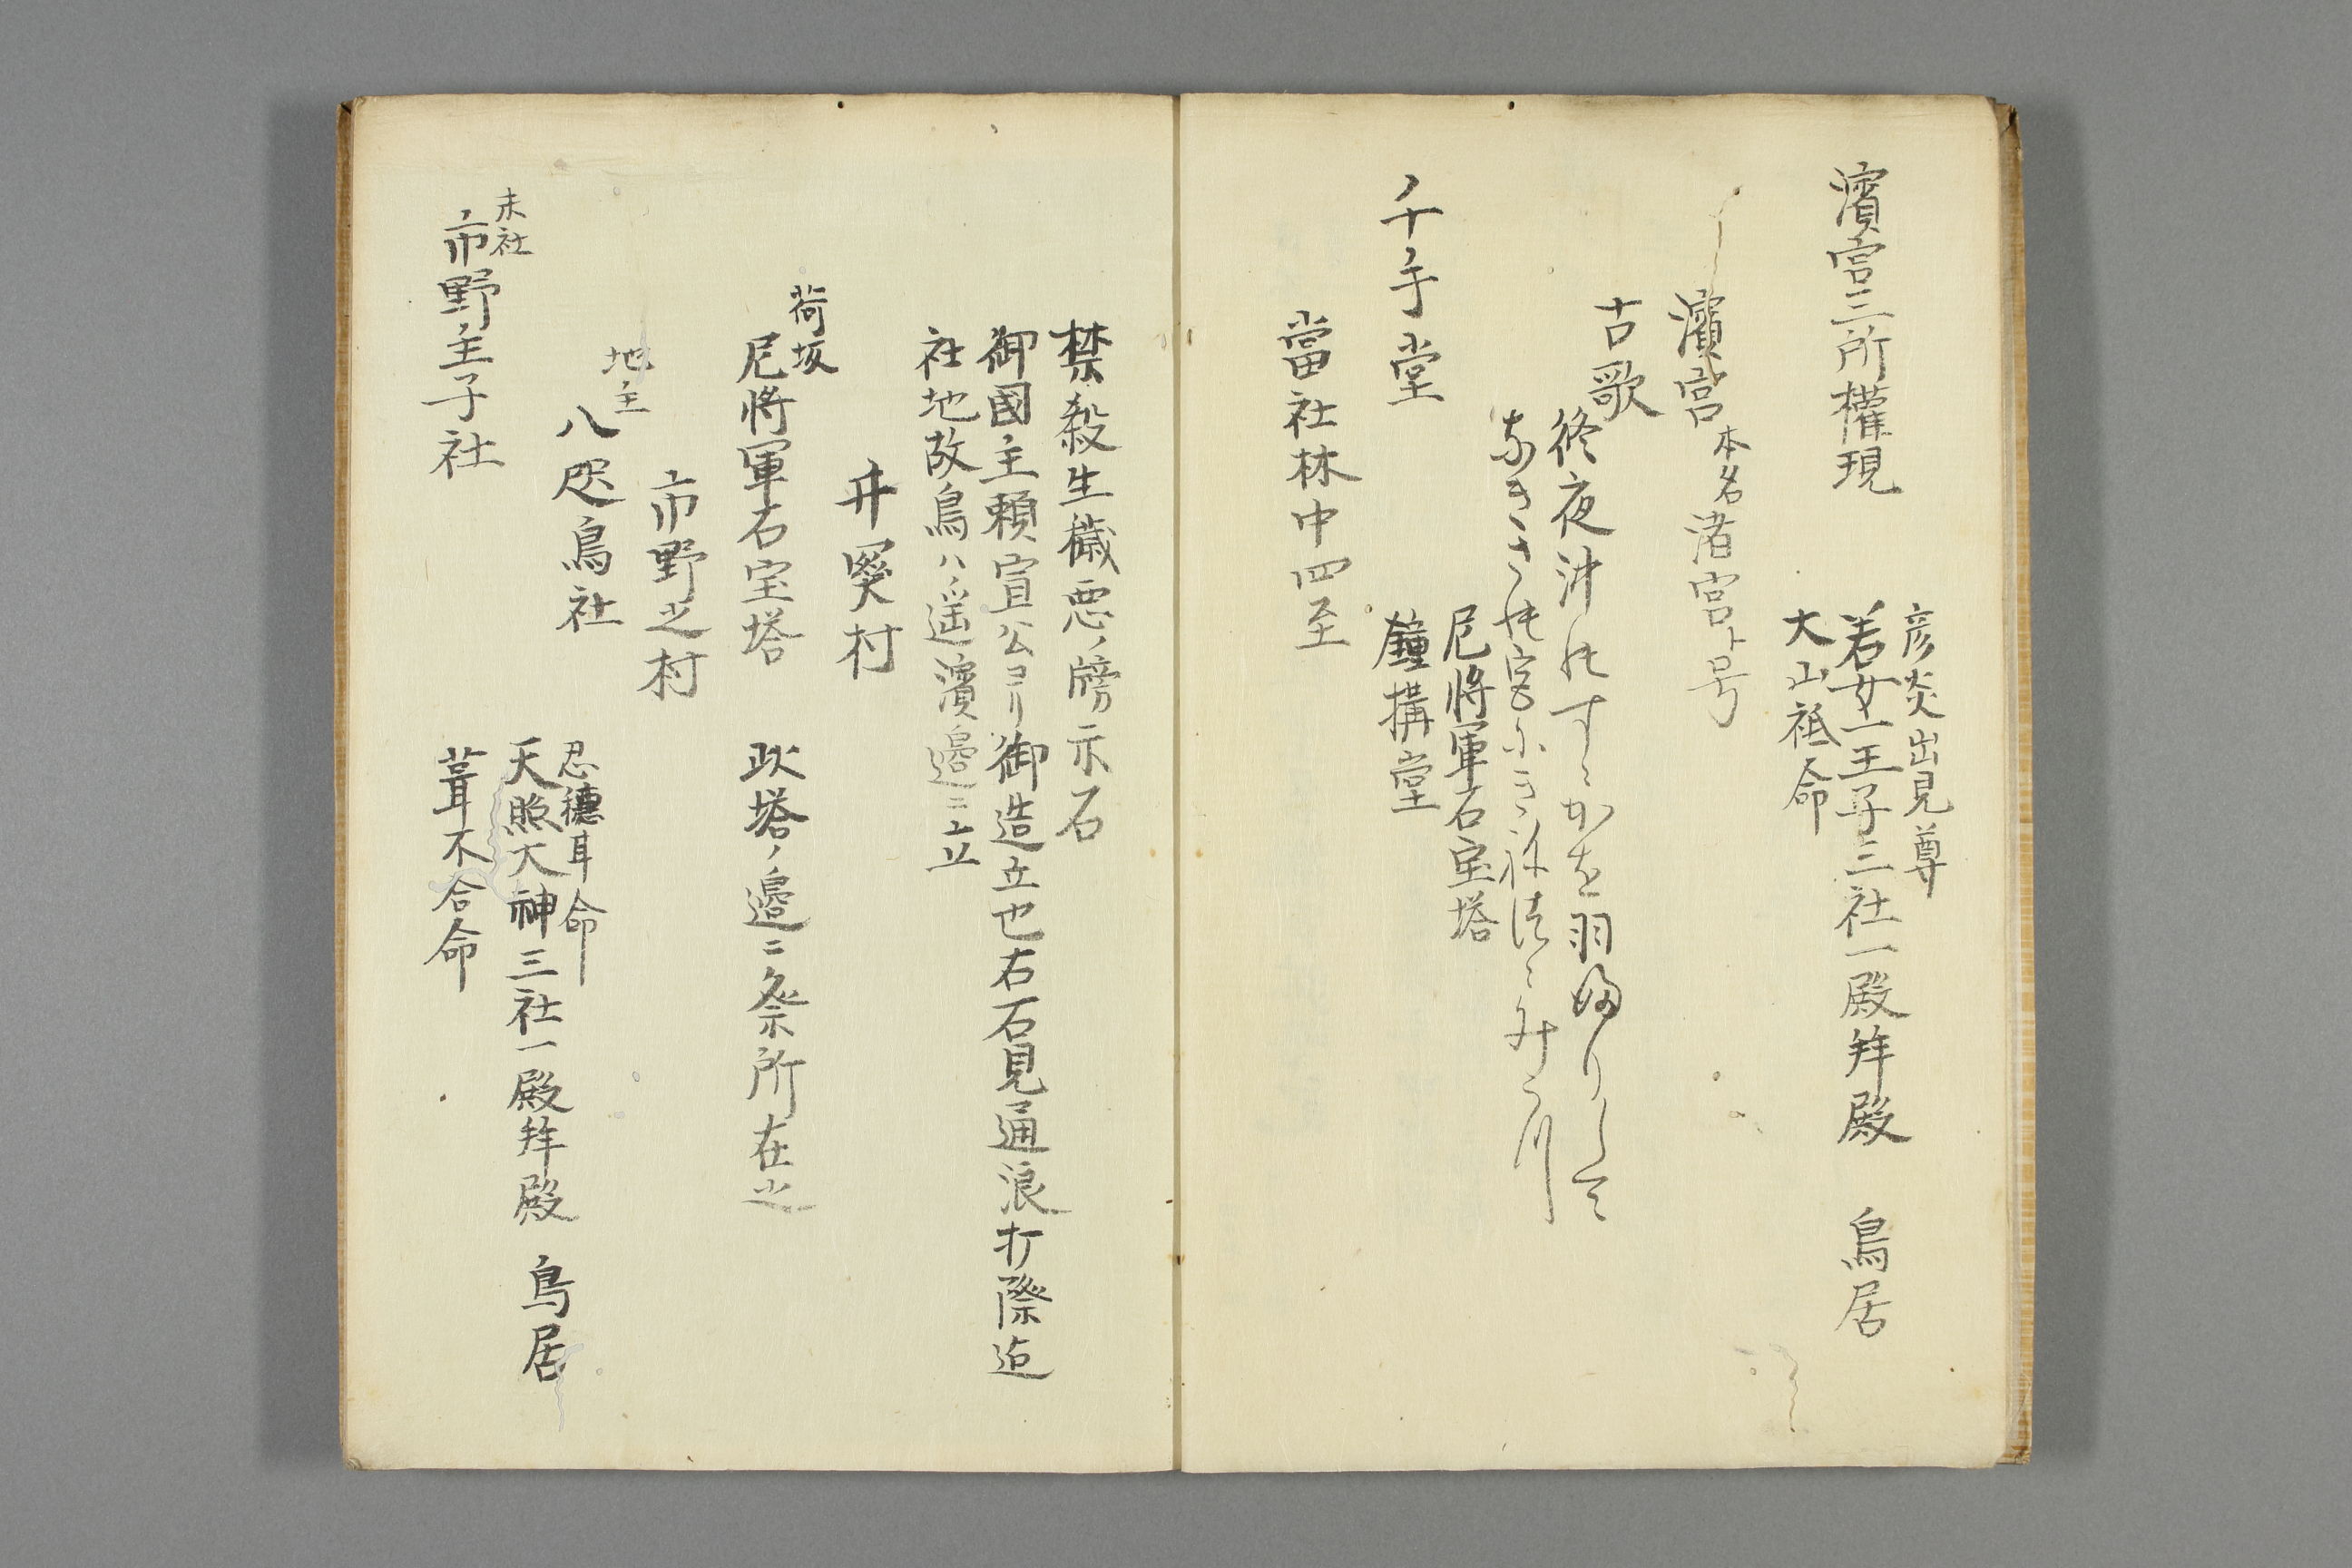 濱宮三所權現
彦炎出見尊
若女一王子三社一殿拜殿　鳥居
大山祗命
濱宮　本名渚宮ト号
古歌
終夜沖のすゝかを羽ふりして
なきさの宮にきねつゝみうつ
千手堂
尼將軍石宝塔
鐘搆堂
當社林中四至
禁殺生穢悪ノ牓示石
御國主頼宣公ヨリ御造立也右石見通浪打際迠
社地故鳥ハ遥濱邉ニ立
井関村
荷坂
尼將軍石宝塔
此塔ノ邉ニ祭所在之
市野之村
地主
八咫烏社
忍穗耳命
天照大神三社一殿拜殿　鳥居
葺不合命
末社
市野王子社